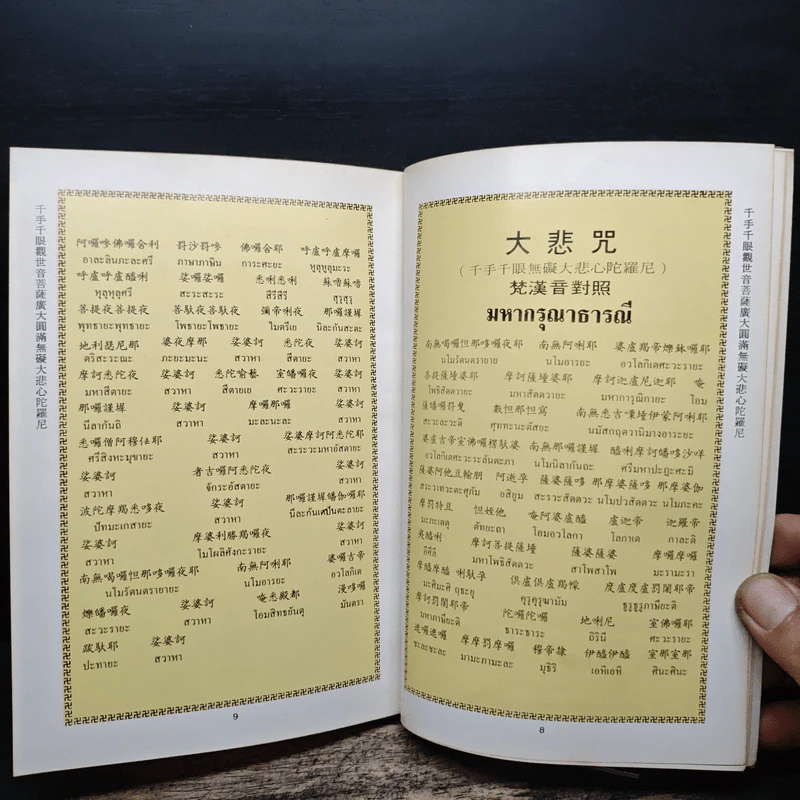 千手千眼觀世音菩薩廣大圓滿無礙大悲心陀羅尼
大悲咒
(千手千眼無礙大悲心陀羅尼)
梵漢音對照
มหากรุณาธารณี
南無喝囉怛那哆囉夜耶 南無阿唎耶 婆盧羯帝爍鉢囉耶
นโมรัตนตรายาย นโมอารยะ อวโลกิเตศะวะรายะ
菩提薩埵婆耶 摩訶薩埵婆耶 摩訶迦盧尼迦耶 唵
โพธิสัตตวายะ มหาสัตตวายะ มหาการุณิกายะ โอม
薩皤囉罰曳 數怛那怛寫 南無悉吉嘌埵伊蒙阿唎耶
สะวะละวะติ ศุททะนะตัสยะ นมัสกฤตวานิมางอาระยะ
婆盧吉帝室佛囉楞馱婆 南無那囉謹墀 醯唎摩訶皤哆沙咩
อวโลกิเตศะวะระลันตะภา นโมนิลากันถะ ศรีมหาปะฏะศะมิ
薩婆阿他豆輸朋 阿逝孕 薩婆薩哆 那摩婆薩哆 那摩婆伽
สะระวาทวะตะศุภัม อสิยูม สะรวะสัตตวะ นโมปวสัตตวะ นโมภะคะ
摩罰特豆 怛姪他 唵阿婆盧醯 盧迦帝 迦羅帝
มะภะเตตุ ตัทยะถา โอมอวโลกา โลกาเต กาละติ
夷醯唎 摩訶菩提薩埵 薩婆薩婆 摩囉摩囉
อิศีลี มหาโพธิสัตตวะ สาโพสาโพ มะรามะรา
摩醯摩醯 唎馱孕 俱盧俱盧羯懞 度盧度盧罰闍耶帝
มะศิมะศิ ฤธะยุ คุรุคุรุฆามัม ธุรุธุรุภาษิยะติ
摩訶罰闍耶帝 陀囉陀囉 地唎尼 室佛囉耶
มหาภาษิยะติ ธาระธาระ ถิรินี ศะวะรายะ
遮囉遮囉 摩摩罰摩囉 穆帝隸 伊醯伊醯 室那室那
ชะละชะละ มามะภามะละ มุธิริ เอหิเอหิ ศินะศินะ
8
阿囉嘇佛囉舍利 罰沙罰嘇 佛囉舍耶 呼盧呼盧摩囉
อาละลินภะละศรี ภาษาภาษิน การะศะยะ หุลุหุลุมะระ
呼盧呼盧醯唎 娑囉娑囉 悉唎悉唎 蘇嚕蘇嚕
หุลุหุลุศรี สะระสะระ สิรีสิรี สุรุสุรุ
菩提夜菩提夜 菩馱夜菩馱夜 彌帝唎夜 那囉謹墀
พุทธายะพุทธายะ โพธายะโพธายะ ไมตรีเย นิละกันสะตะ
地利瑟尼那 婆夜摩那 娑婆訶 悉陀夜 娑婆訶
ตริสะระณะ ภะยะมะนะ สวาหา สีตายะ สวาหา
摩訶悉陀夜 娑婆訶 悉陀喻藝 室皤囉夜 娑婆訶
มหาสีตายะ สวาหา สีตายเย ศะวะรายะ สวาหา
那囉謹墀 娑婆訶 摩囉那囉 娑婆訶
นีลากันถิ สวาหา มะละนะละ สวาหา
悉囉僧阿穆佉耶 娑婆訶 娑婆摩訶阿悉陀耶
ศรีสิงหะมุขายะ สวาหา สะระวะมหาอัสตายะ
娑婆訶 者吉囉阿悉陀夜 娑婆訶
สวาหา จักระอัสตายะ สวาหา
波陀摩羯悉哆夜 娑婆訶 那囉謹墀皤伽囉耶
ปัทมะเกสายะ สวาหา
娑婆訶 摩婆利勝羯囉夜 娑婆訶
สวาหา โมโผลิศังกะรายะ สวาหา
南無喝囉怛那哆囉夜耶 南無阿唎耶 婆嚧吉帝
นโมรัตนตรายายะ นโมอารยะ อวโลกิเต
爍皤囉夜 娑婆訶 唵悉殿都 漫哆囉
สะวะรายะ สวาหา โอมสิทธยันตุ มันตรา
跋馱耶 娑婆訶
ปะทายะ สวาหา
9
千手千眼觀世音菩薩廣大圓滿無礙大悲心陀羅尼